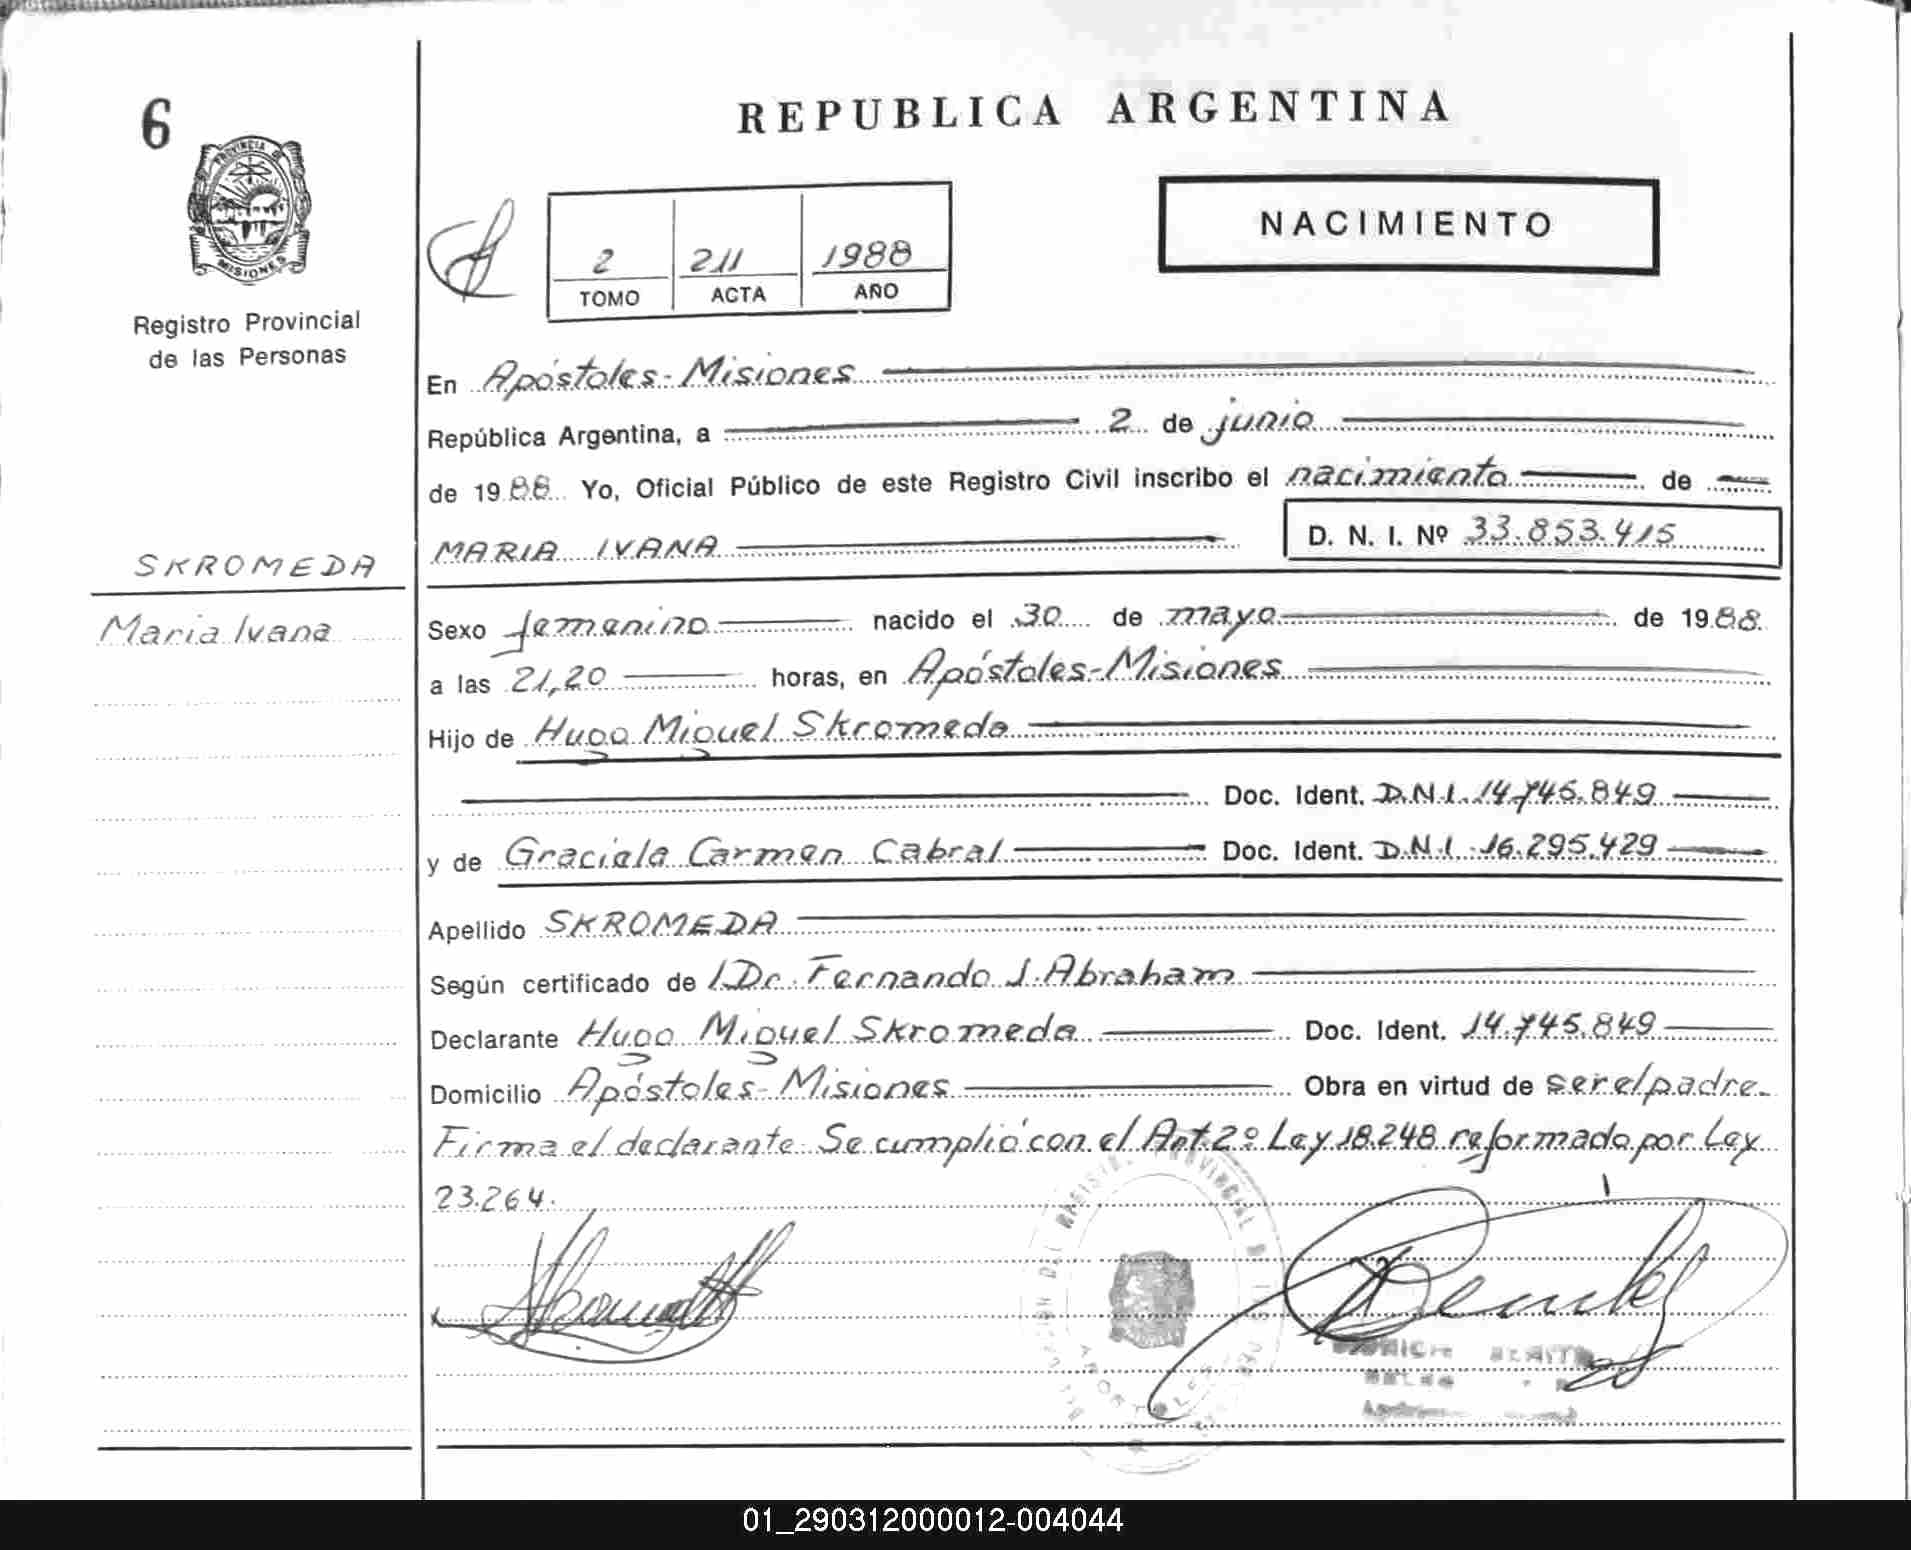 6
REPUBLICA ARGENTINA
PROVINCIA DE
MISIONES
NACIMIENTO
2 211 1988
TOMO ACTA AÑO
Registro Provincial
de las Personas
En Apóstoles-Misiones
República Argentina, a 2 de junio
de 1988 Yo, Oficial Público de este Registro Civil inscribo el nacimiento de
MARIA IVANA D. N. I. Nº 33.853.415
SKROMEDA
Maria Ivana
Sexo femenino nacido el 30 de mayo de 1988
a las 21,20 horas, en Apóstoles-Misiones
Hijo de Hugo Miguel Skromeda
Doc. Ident. D.N.I. 14.745.849
y de Graciela Carmen Cabral Doc. Ident. D.N.I. 16.295.429
Apellido SKROMEDA
Según certificado de Dr. Fernando J. Abraham
Declarante Hugo Miguel Skromeda Doc. Ident. 14.745.849
Domicilio Apóstoles-Misiones Obra en virtud de ser el padre.
Firma el declarante. Se cumplió con el Art. 2º Ley 18.248 reformado por Ley
23.264.
01_290312000012-004044